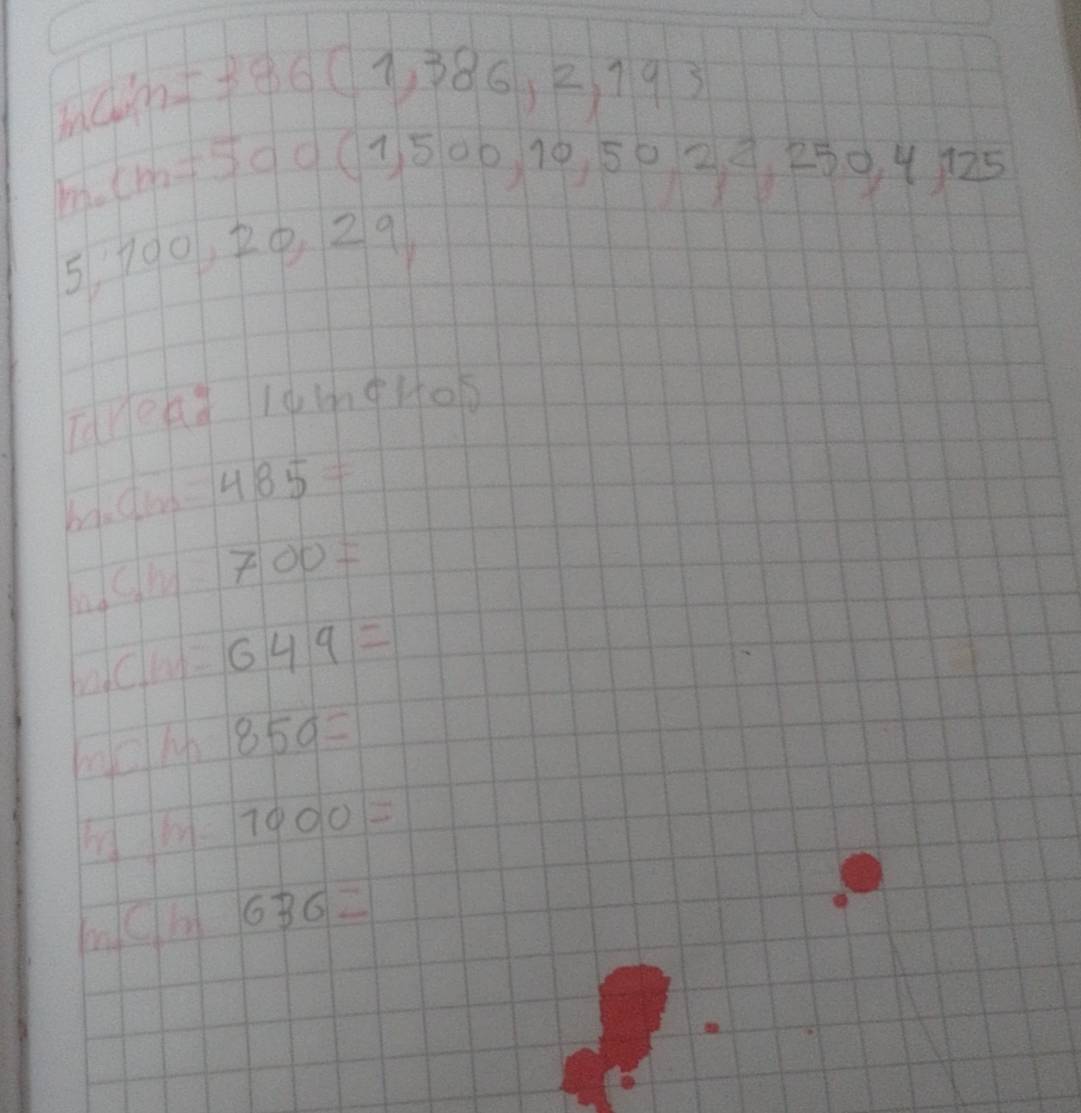 m.c.m = 386 ( 1, 386, 2, 193
m.cm = 500 ( 1, 500, 10, 50, 2, 2, 250, 4, 125
5, 100, 20, 29,
Tarea:
m.cm = 485 =
m.c.m = 700 =
m.c.m = 649 =
mcm 850 =
m m = 1000 =
m.c.m 636 =